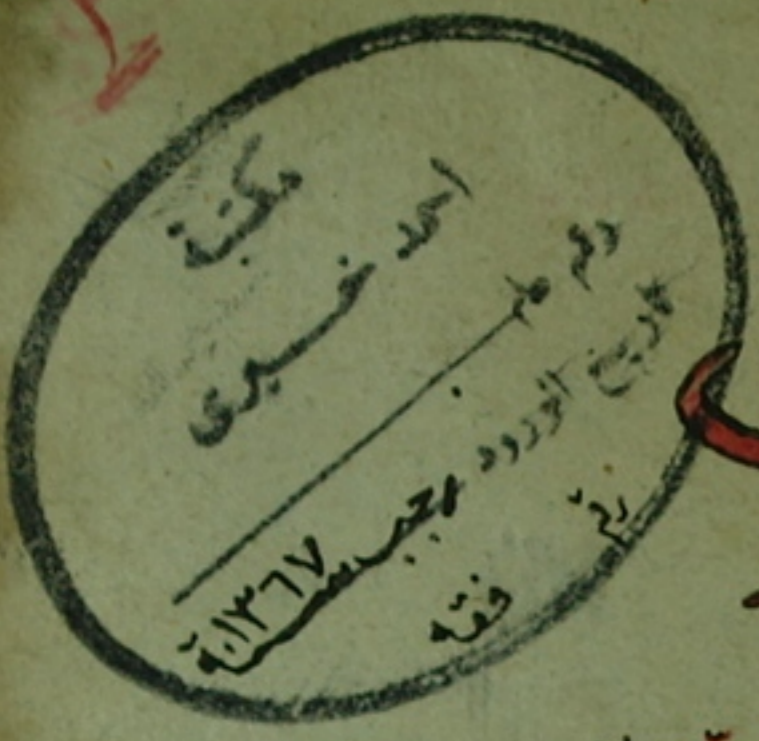 مكتبة
احمد خيرى
رقم عام
تاريخ الورود رجب سنة ١٣٦٧
رقم فقه